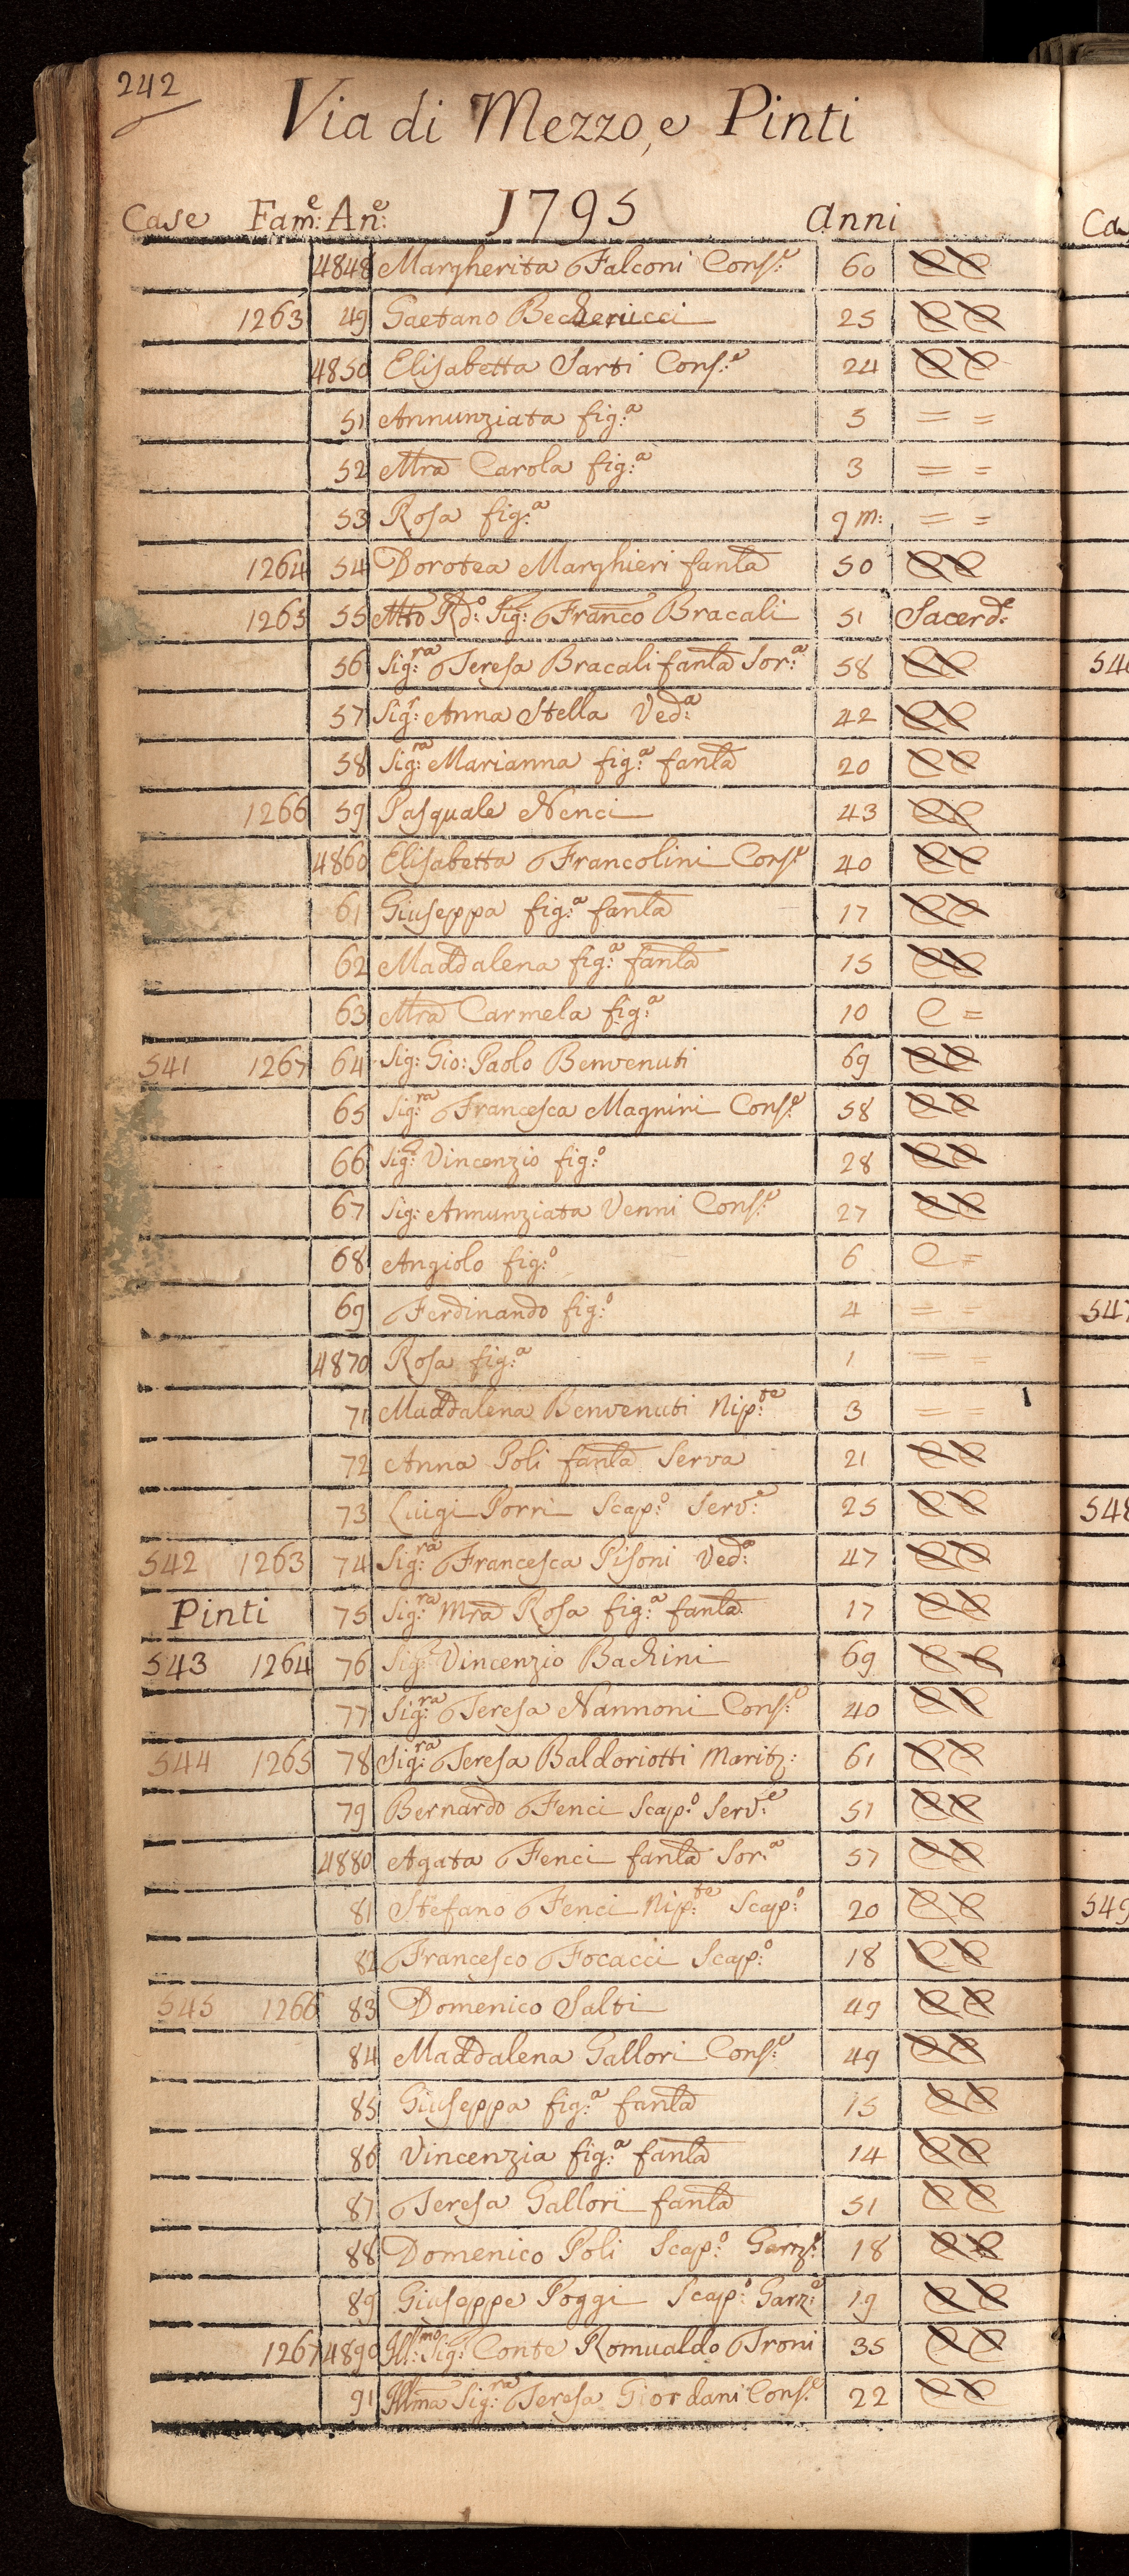 242
Via di Mezzo, e Pinti
Case Fam:e An:e 1795 anni
4848 Margherita Falconi Cons:e 60
1263 49 Gaetano Becherucci 25
4850 Elisabetta Sarti Cons:e 24
51 Annunziata fig:a 5 = =
52 Mra Carola fig:a 3 = =
53 Rosa fig:a 9 m: = =
1264 54 Dorotea Marghieri fanla 50
1265 55 Mto Rdo: Sig: Franco Bracali 51 Sacerd:e
56 Sig:ra Teresa Bracali fanla Sor:a 58
57 Sig:r Anna Stella Ved:a 42
58 Sig:ra Marianna fig:a fanla 20
1266 59 Pasquale Nenci 43
4860 Elisabetta Francolini Cons:e 40
61 Giuseppa fig:a fanla 17
62 Maddalena fig:a fanla 15
63 Mra Carmela fig:a 10 C =
541 1267 64 Sig: Gio: Paolo Benvenuti 69
65 Sig:ra Francesca Magnini Cons:e 58
66 Sig:r Vincenzio fig:o 28
67 Sig: Annunziata Venni Cons:e 27
68 Angiolo fig:o 6 C =
69 Ferdinando fig:o 4 = =
4870 Rosa fig:a 1 = =
71 Maddalena Benvenuti Nip:te 3 = =
72 Anna Poli fanla Serva 21
73 Luigi Porri Scap:o Serv:e 25
542 1263 74 Sig:ra Francesca Pisoni Ved:a 47
Pinti 75 Sig:ra Mra Rosa fig:a fanla 17
543 1264 76 Sig:r Vincenzio Bachini 69
77 Sig:ra Teresa Nannoni Cons:e 40
544 1265 78 Sig:ra Teresa Baldoriotti Marit: 61
79 Bernardo Fenci Scap:o Serv:e 51
4880 Agata Fenci fanla Sor:a 57
81 Stefano Fenci Nip:te Scap:o 20
82 Francesco Focacci Scap:o 18
545 1266 83 Domenico Salti 49
84 Maddalena Gallori Cons:e 49
85 Giuseppa fig:a fanla 15
86 Vincenzia fig:a fanla 14
87 Teresa Gallori fanla 51
88 Domenico Poli Scap:o Garz:e 18
89 Giuseppe Poggi Scap:o Garz:e 19
1267 4890 Ill:mo Sig:r Conte Romualdo Troni 35
91 Illma Sig:ra Teresa Giordani Cons:e 22
547
548